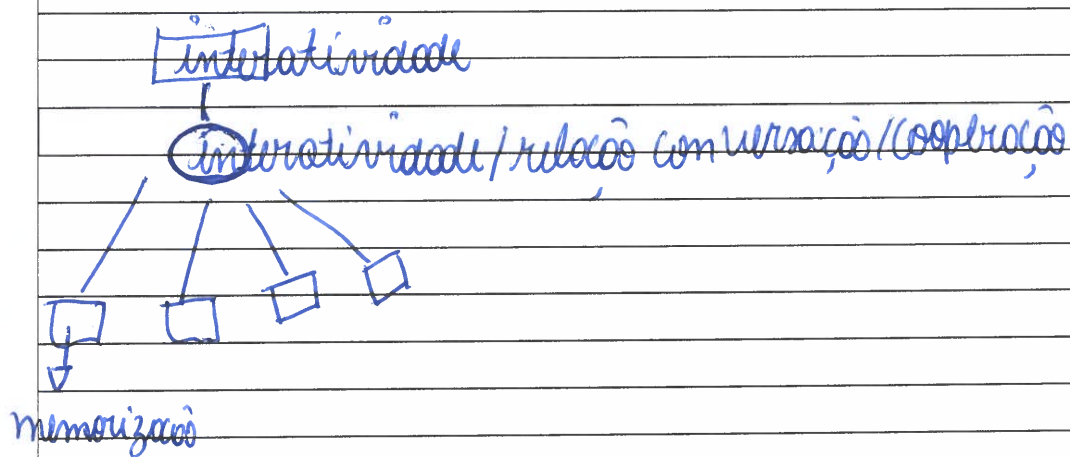 interatividade
interatividade/relação conversação/cooperação
memorização